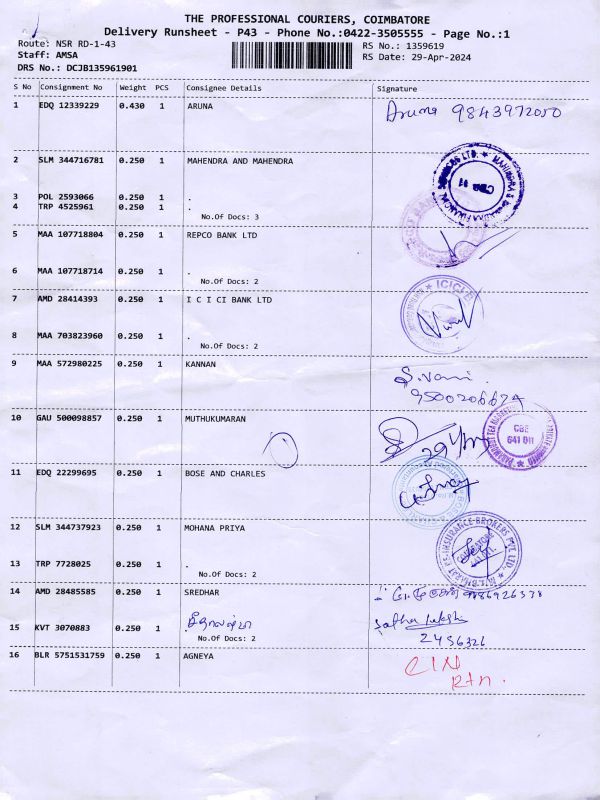 THE PROFESSIONAL COURIERS, COIMBATORE
Delivery Runsheet - P43 - Phone No.:0422-3505555 - Page No.:1
Route: NSR RD-1-43 RS No.: 1359619
Staff: AMSA RS Date: 29-Apr-2024
DRS No.: DCJB135961901
S No Consignment No Weight PCS Consignee Details Signature
1 EDQ 12339229 0.430 1 ARUNA Aruna 9843972050
2 SLM 344716781 0.250 1 MAHENDRA AND MAHENDRA
3 POL 2593066 0.250 1 .
4 TRP 4525961 0.250 1 .
No.Of Docs: 3
5 MAA 107718804 0.250 1 REPCO BANK LTD
6 MAA 107718714 0.250 1 .
No.Of Docs: 2
7 AMD 28414393 0.250 1 I C I CI BANK LTD
8 MAA 703823960 0.250 1 .
No.Of Docs: 2
9 MAA 572980225 0.250 1 KANNAN S. Vani
10 GAU 500098857 0.250 1 MUTHUKUMARAN
CBE
641 011
11 EDQ 22299695 0.250 1 BOSE AND CHARLES
12 SLM 344737923 0.250 1 MOHANA PRIYA
13 TRP 7728025 0.250 1 .
No.Of Docs: 2
14 AMD 28485585 0.250 1 SREDHAR
15 KVT 3070883 0.250 1
No.Of Docs: 2 2456326
16 BLR 5751531759 0.250 1 AGNEYA
Rtn.